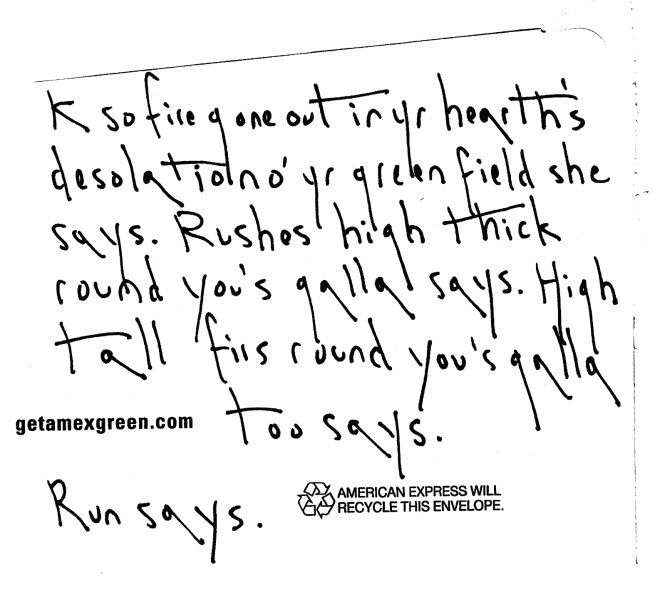 K so fire gone out in yr hearth's
desolation o' yr green field she
says. Rushes high thick
round you's galla says. High
tall firs round you's galla
getamexgreen.com
too says.
Run says.
AMERICAN EXPRESS WILL
RECYCLE THIS ENVELOPE.